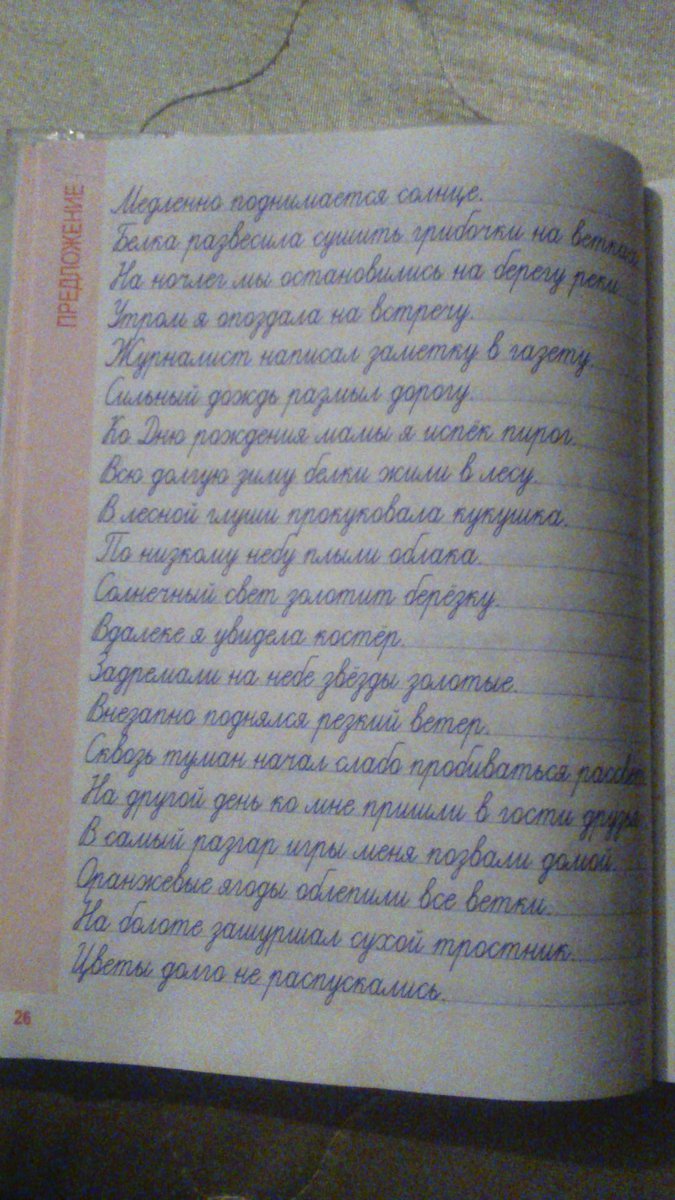 ПРЕДЛОЖЕНИЕ
Медленно поднимается солнце.
Белка развесила сушить грибочки на ветках.
На ночлег мы остановились на берегу реки.
Утром я опоздала на встречу.
Журналист написал заметку в газету.
Сильный дождь размыл дорогу.
Ко Дню рождения мамы я испёк пирог.
Всю долгую зиму белки жили в лесу.
В лесной глуши прокуковала кукушка.
По низкому небу плыли облака.
Солнечный свет золотит берёзку.
Вдалеке я увидела костёр.
Задремали на небе звёзды золотые.
Внезапно поднялся резкий ветер.
Сквозь туман начал слабо пробиваться рассвет.
На другой день ко мне пришли в гости друзья.
В самый разгар игры меня позвали домой.
Оранжевые ягоды облепили все ветки.
На болоте зашуршал сухой тростник.
Цветы долго не распускались.
26